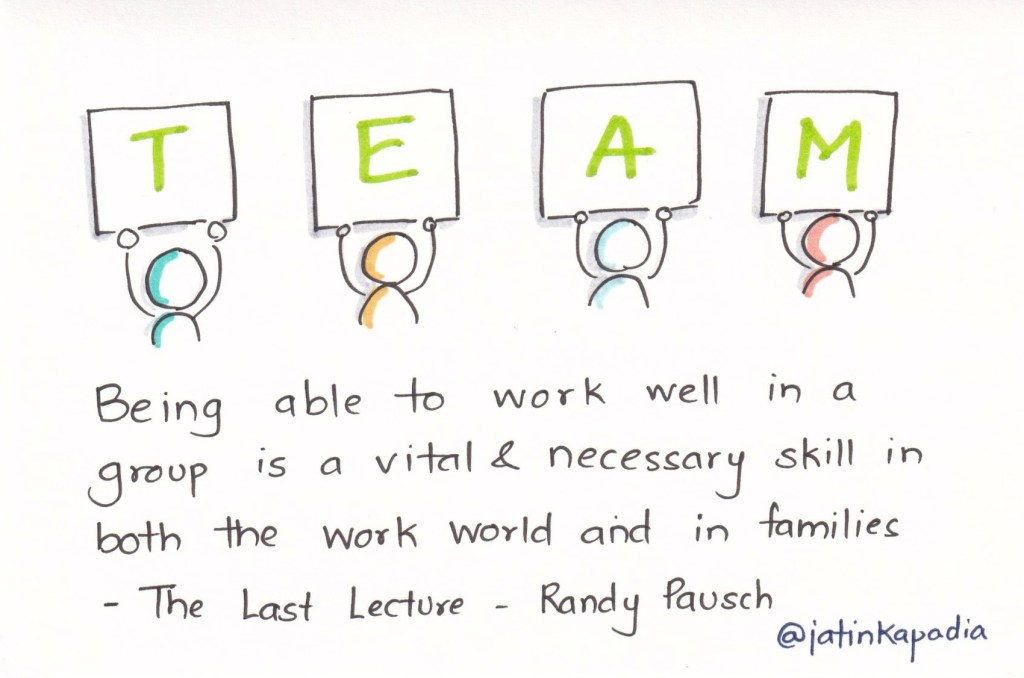 T E A M
Being able to work well in a
group is a vital & necessary skill in
both the work world and in families
- The Last Lecture - Randy Pausch
@jatinkapadia